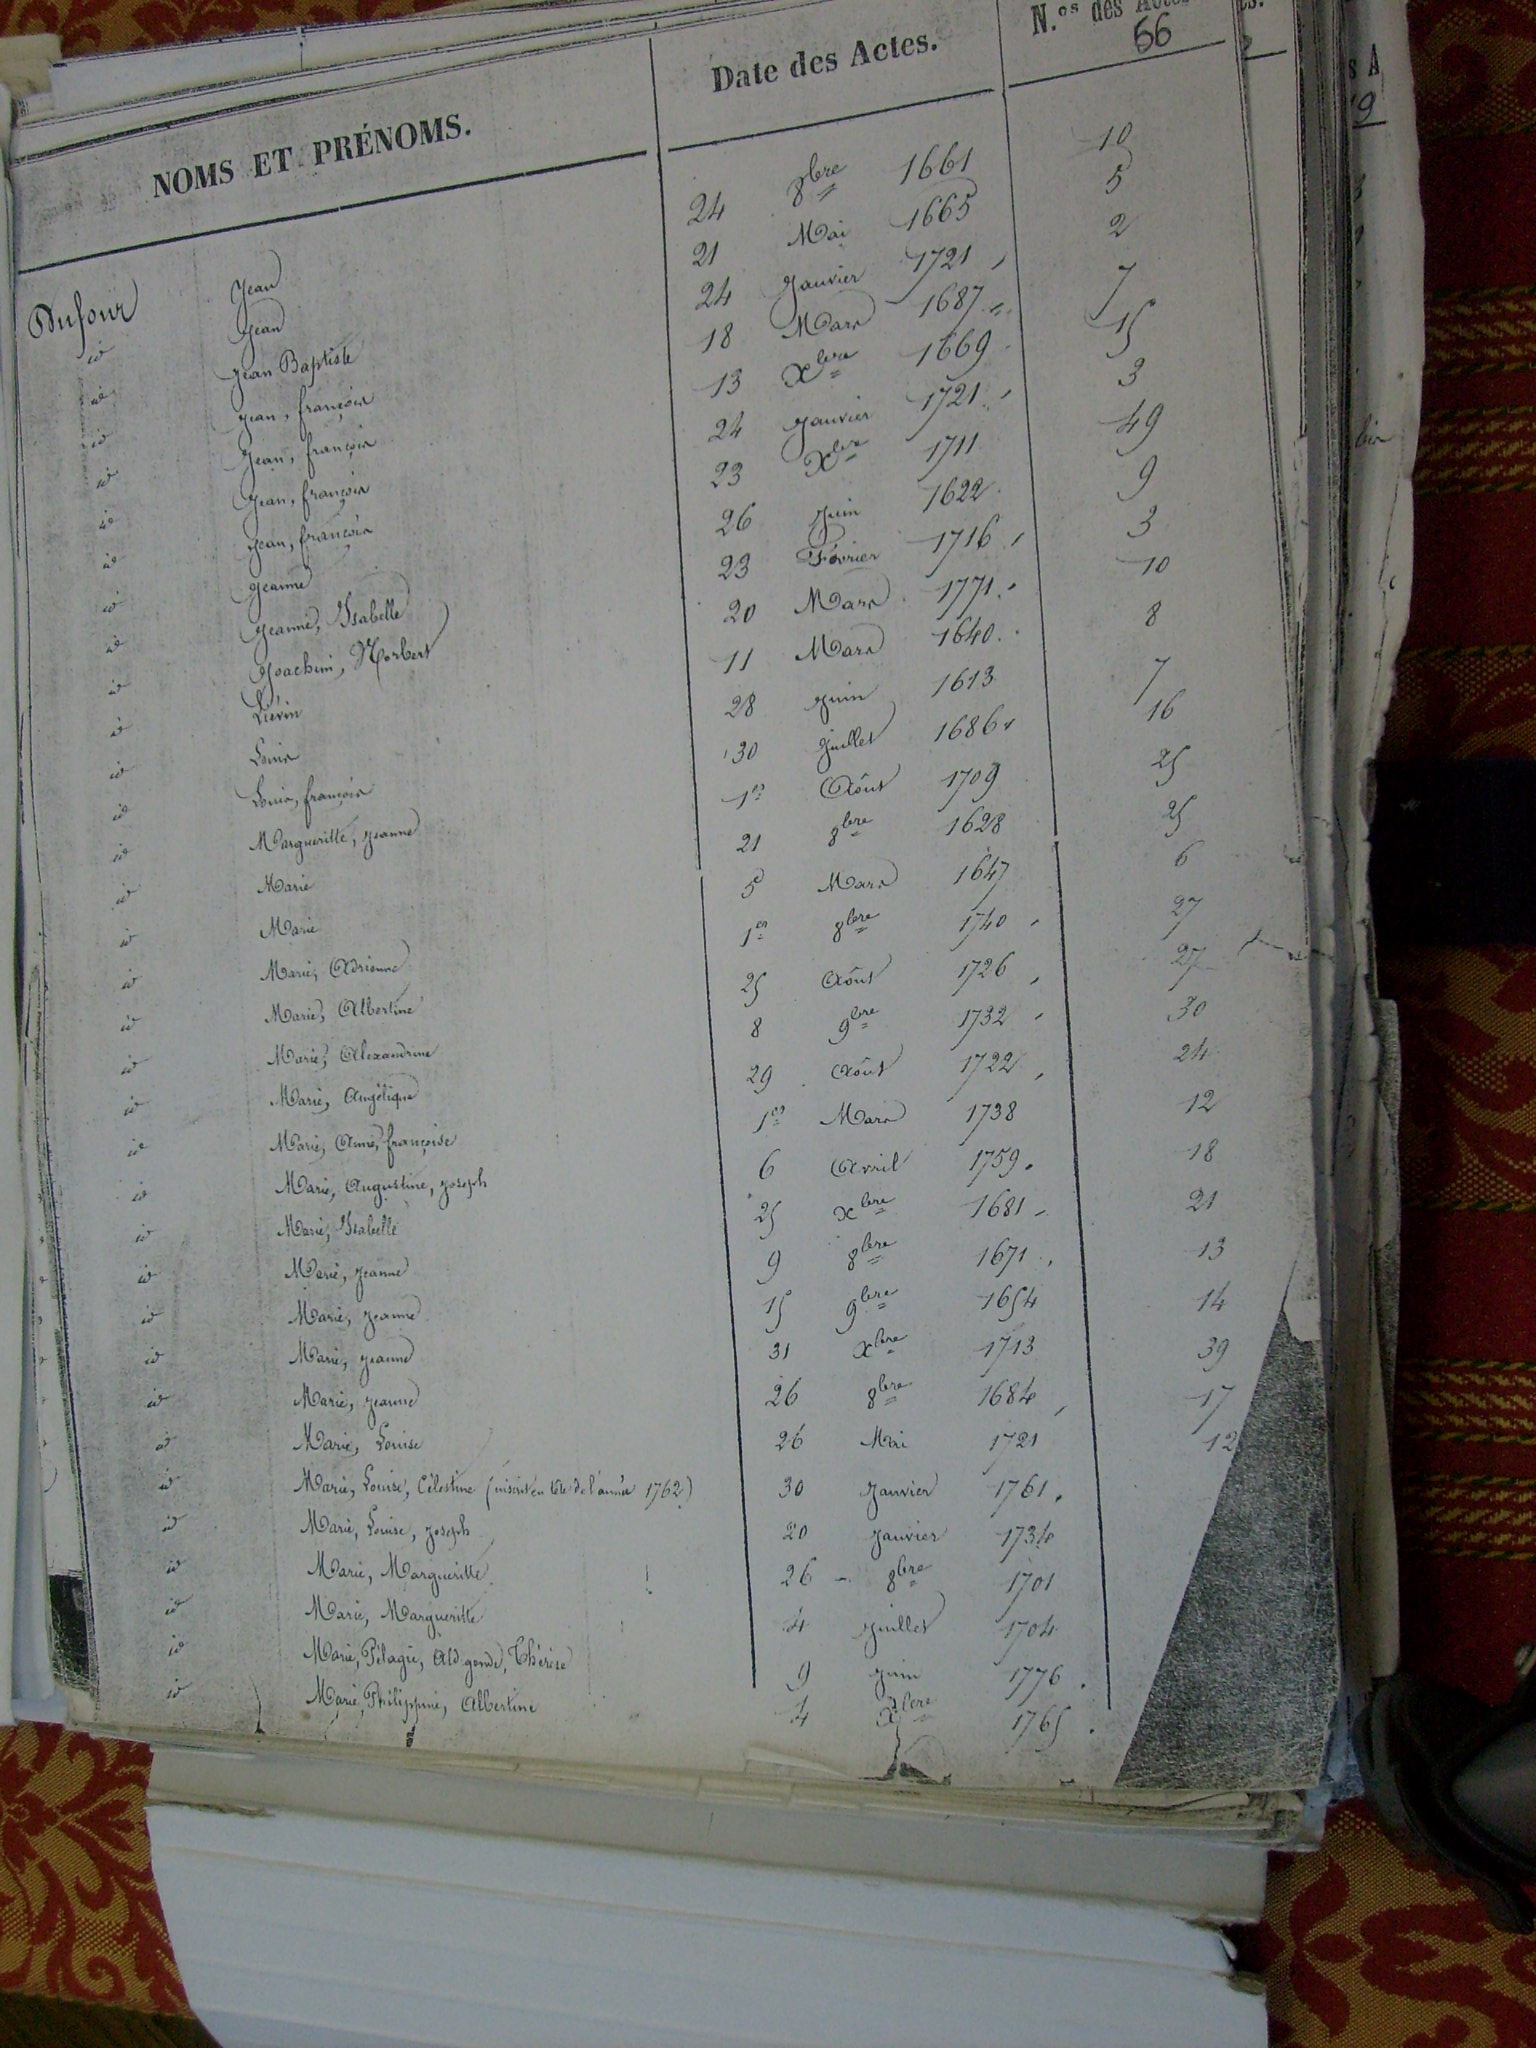 NOMS ET PRÉNOMS. Date des Actes. N.os des Actes
66
Dufour Jean 24 8bre 1661 10
id Jean 21 Mai 1665 5
id Jean Baptiste 24 Janvier 1721 2
id Jean, françois 18 Mars 1687 7
id Jean, françois 13 Xbre 1669 15
id Jean, françois 24 Janvier 1721 3
id Jean, françois 23 Xbre 1711 49
id Jeanne 26 Juin 1622 9
id Jeanne, Isabelle 23 Février 1716 3
id Joachim, Norbert 20 Mars 1771 10
id Liévin 11 Mars 1640 8
id Louis 28 Juin 1613 7
id Louis, françois 30 Juillet 1686 16
id Margueritte, Jeanne 1er Août 1709 25
id Marie 21 8bre 1628 25
id Marie 5 Mars 1647 6
id Marie, Adrienne 1er 8bre 1740 27
id Marie, Albertine 25 Août 1726 27
id Marie, Alexandrine 8 9bre 1732 30
id Marie, Angélique 29 Août 1722 24
id Marie, Anne, françoise 1er Mars 1738 12
id Marie, Augustine, Joseph 6 Avril 1759 18
id Marie, Isabelle 25 xbre 1681 21
id Marie, Jeanne 9 8bre 1671 13
id Marie, Jeanne 15 9bre 1654 14
id Marie, Jeanne 31 xbre 1713 39
id Marie, Jeanne 26 8bre 1684 17
id Marie, Louise 26 Mai 1721 12
id Marie, Louise, Célestine (inscrit en tête de l'année 1762) 30 Janvier 1761
id Marie, Louise, Joseph 20 Janvier 1734
id Marie, Margueritte 26 8bre 1701
id Marie, Margueritte 4 Juillet 1704
id Marie, Pélagie, Aldgonde, Thérèse 9 Juin 1776
id Marie, Philippine, Albertine 4 xbre 1765